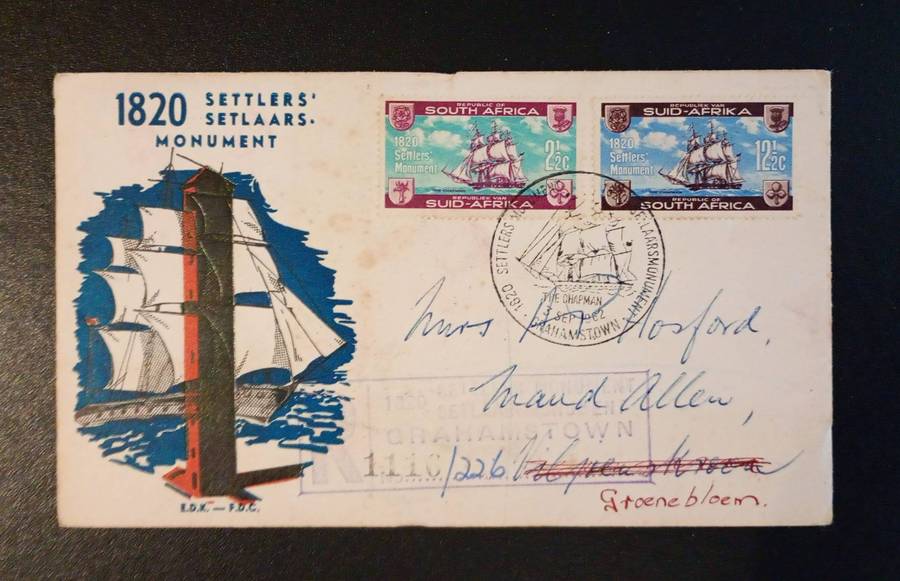 1820 SETTLERS'
SETLAARS-
MONUMENT
E.D.K. — F.D.C.
REPUBLIC OF
SOUTH AFRICA
1820
Settlers'
Monument
2½c
THE CHAPMAN
REPUBLIEK VAN
SUID-AFRIKA
REPUBLIEK VAN
SUID-AFRIKA
1820
Settlers'
Monument
12½c
THE CHAPMAN
REPUBLIC OF
SOUTH AFRICA
1820 SETTLERS MONUMENT
SETLAARSMONUMENT
THE CHAPMAN
3 SEP 1962
GRAHAMSTOWN
Hosford,
Maud Allen,
1820 SETTLERS MONUMENT
1820 SETLAARSMONUMENT
GRAHAMSTOWN
R
/226
Groenebloem.